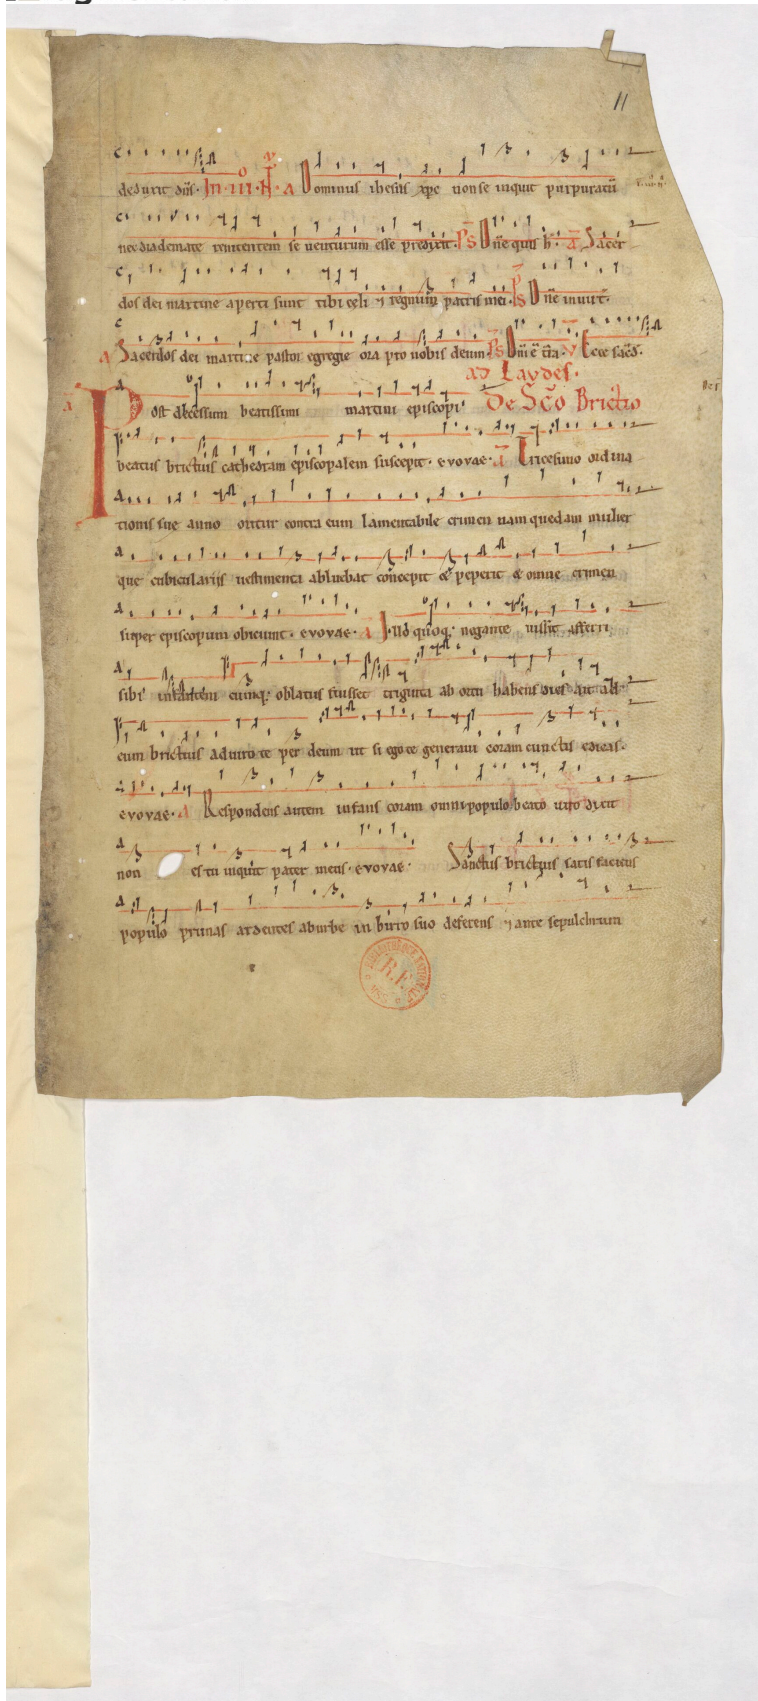 11
deduxit dñs. In .iii. N. a Dominus ihesus xpc non se inquit purpuratũ
nec diademate renitentem se venturum esse predixit. Ps Dñe quis h. a Sacer
dos dei martine aperti sunt tibi celi ⁊ regnum patris mei. Ps Dñe in uirt.
a Sacerdos dei martine pastor egregie ora pro nobis deum. Ps Dñi ẽ t̃ra. V Ecce sac̃d.
ad Laudes.
a Post discessum beatissimi martini episcopi De Sc̃o Brictio
beatus brictius cathedram episcopalem suscepit. evovae. a Tricesimo ordina
tionis sue anno oritur contra eum lamentabile crimen nam quedam mulier
que cubicularijs uestimenta abluebat concepit & peperit & omne crimen
super episcopum obiciunt. evovae. a Illo quoq; negante iussit afferri
sibi infantem cumq; oblatus fuisset triginta ab ortu habens dies ait ad
eum brictius adiuro te per deum ut si ego te generaui coram cunctis edicas.
evovae. a Respondens autem infans coram omni populo beato uiro dixit
non es tu inquit pater meus. evovae. Sanctus brictius satis faciens
populo prunas ardentes ab urbe in birro suo deferens ⁊ ante sepulchrum
BIBLIOTHÈQUE NATIONALE
R.F.
MSS